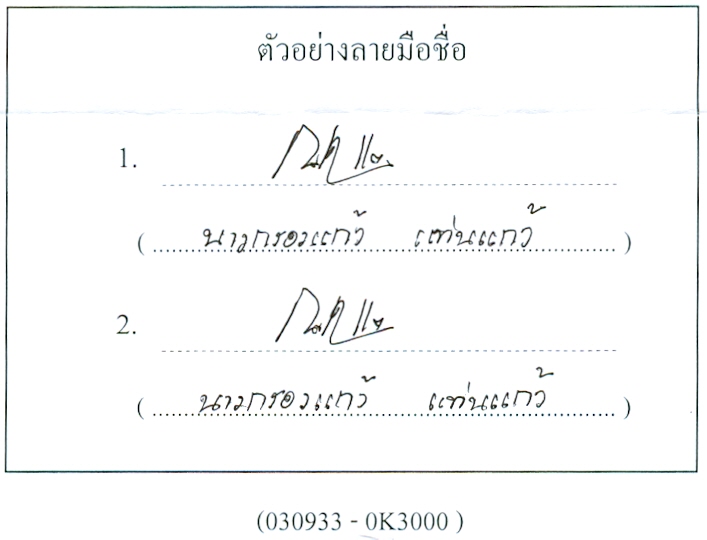 ตัวอย่างลายมือชื่อ
1.
( นางกรองแก้ว แท่นแก้ว )
2.
( นางกรองแก้ว แท่นแก้ว )
(030933 - 0K3000 )